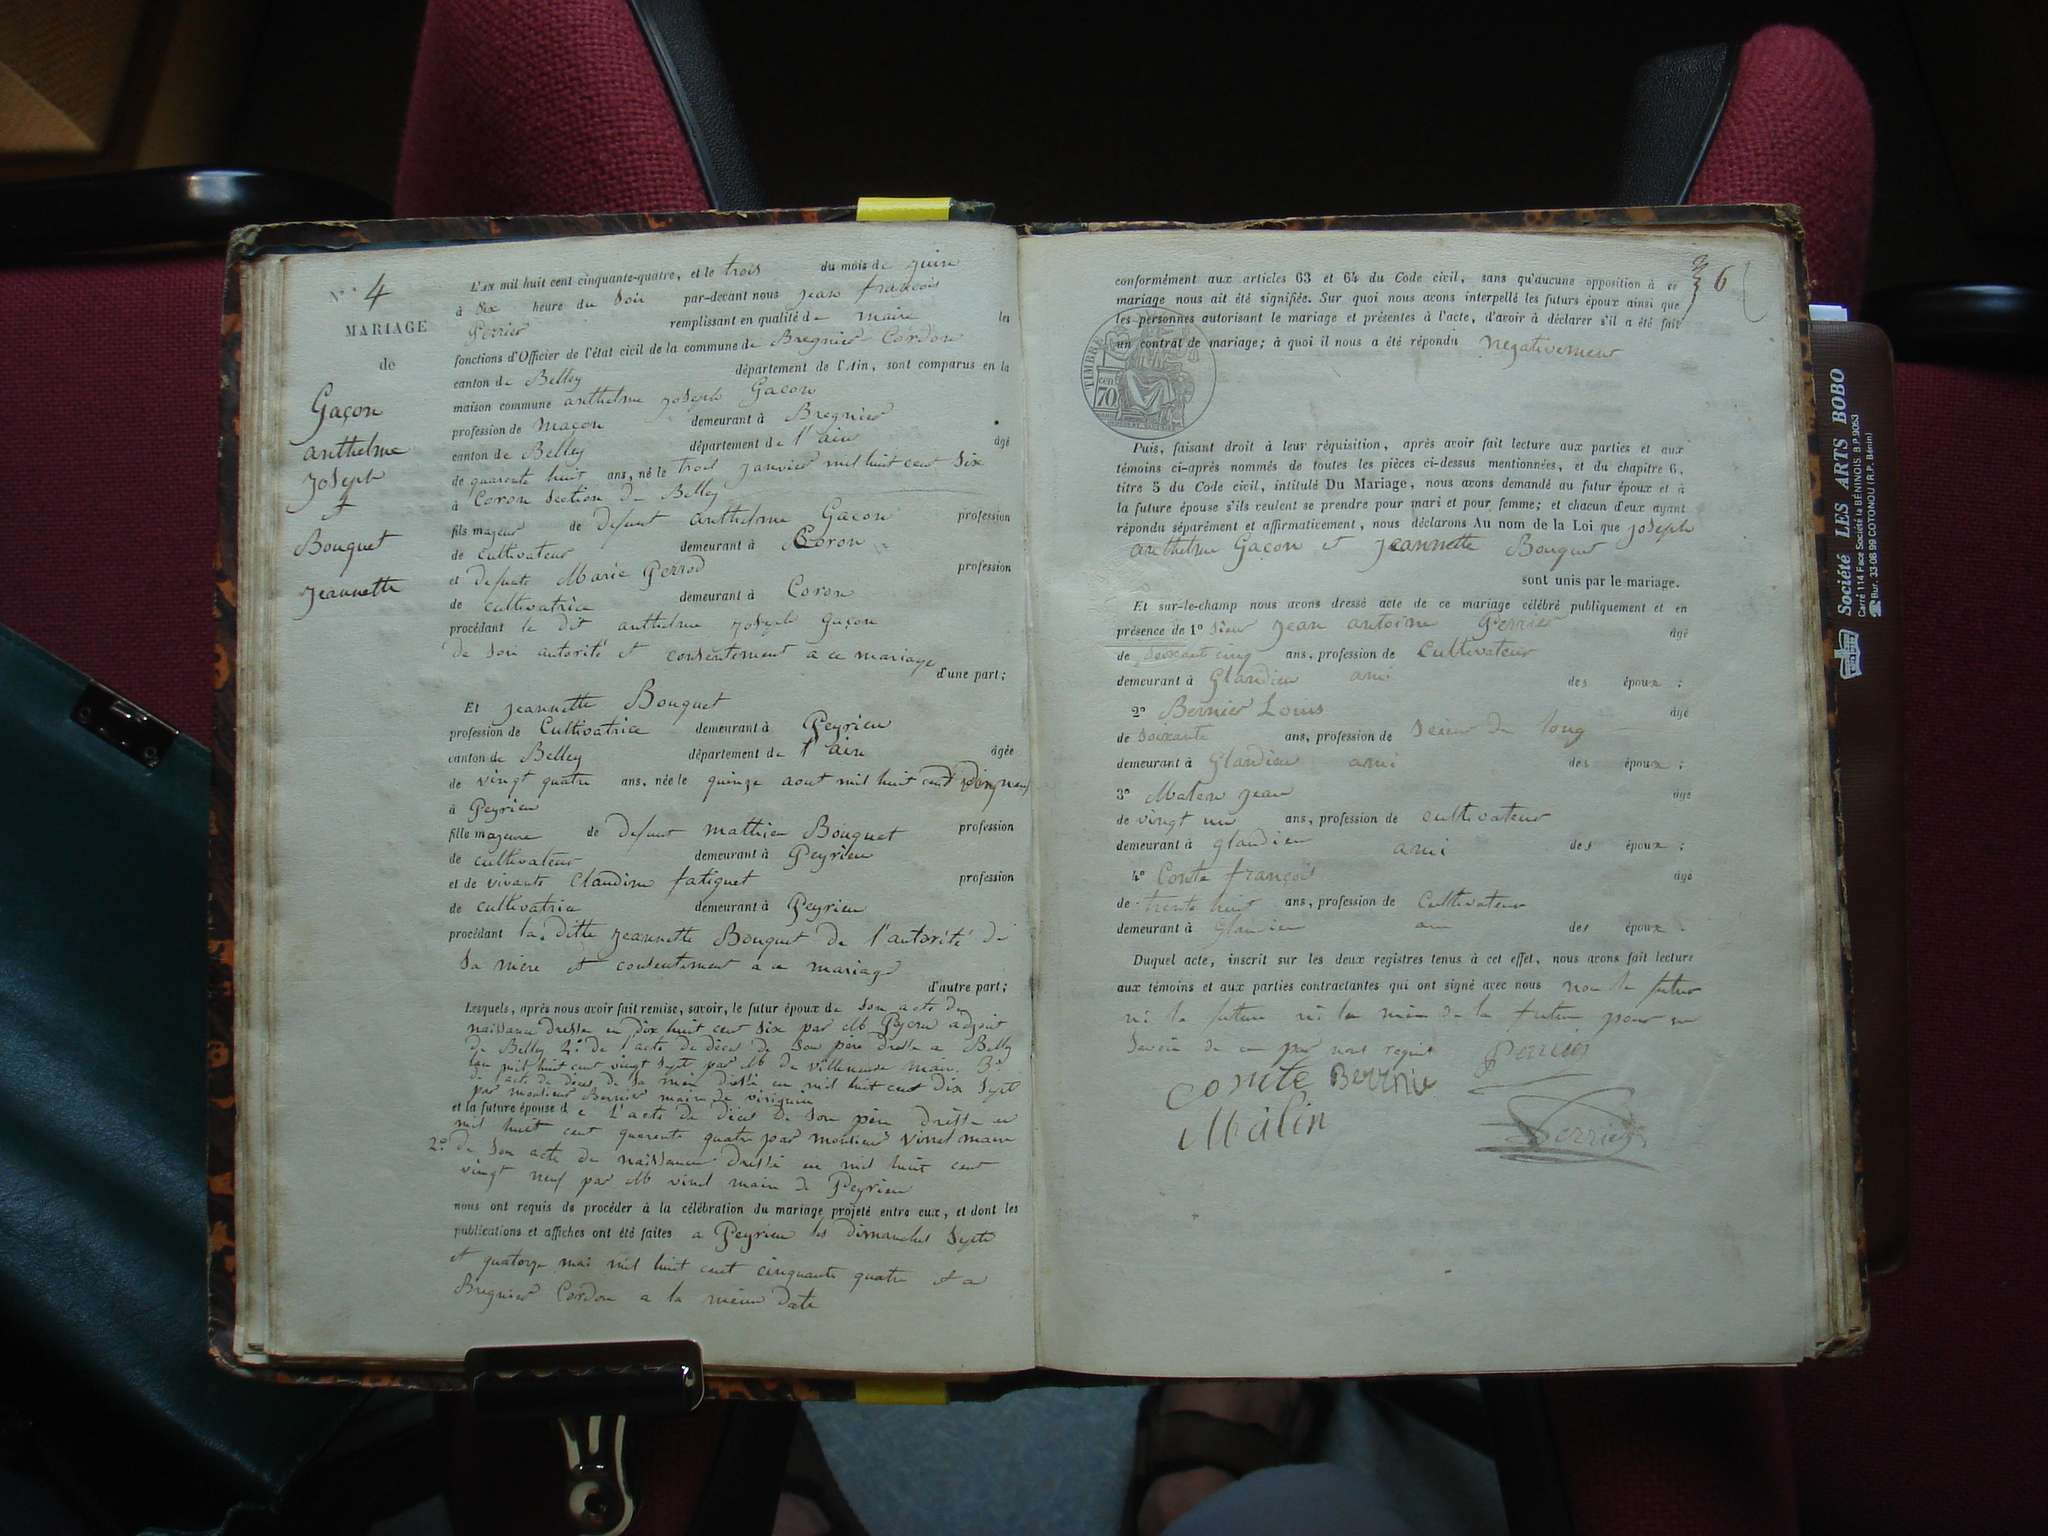 N° 4
MARIAGE
de
Gaçon
anthelme
Joseph
et
Bouquet
Jeannette
L'AN mil huit cent cinquante-quatre, et le trois du mois de juin
à Six heure du Soir par-devant nous Jean françois
Perrier remplissant en qualité de maire les
fonctions d'Officier de l'état civil de la commune de Bregnier Cordon
canton de Belley département de l'Ain, sont comparus en la
maison commune anthelme Joseph Gacon
profession de Maçon demeurant à Bregnier
canton de Belley département de l'ain âgé
de quarente huit ans, né le trois Janvier mil huit cent Six
à Coron Section de Belley
fils majeur de defunt anthelme Gacon profession
de cultivateur demeurant à Coron
et defunte Marie Perrod profession
de cultivatrice demeurant à Coron
procédant le dit anthelme Joseph Gaçon
de Son autorité et consentement a ce mariage
d'une part;
Et Jeannette Bouquet
profession de Cultivatrice demeurant à Peyrieu
canton de Belley département de l'ain âgée
de vingt quatre ans, née le quinze aout mil huit cent vingt neuf
à Peyrieu
fille majeure de defunt mathieu Bouquet profession
de cultivateur demeurant à Peyrieu
et de vivante Claudine fatiguet profession
de cultivatrice demeurant à Peyrieu
procédant la ditte Jeannette Bouquet de l'autorité de
Sa mère et consentement a ce mariage
d'autre part;
Lesquels, après nous avoir fait remise, savoir, le futur époux de Son acte de
naissance dressé en dix huit cent Six par M Peyru adjoint
de Belley 2° de l'acte de décès de Son père dressé a Belley
lan mil huit cent vingt Sept par M de Villeneuve maire 3°
de l'acte de décès de Sa mère dressé en mil huit cent dix Sept
par monsieur Bernier maire de virignin
et la future épouse de L'acte de décès de Son père dressé en
mil huit cent quarente quatre par monsieur vinet maire
2° de Son acte de naissance dressé en mil huit cent
vingt neuf par M vinet maire de Peyrieu
nous ont requis de procéder à la célébration du mariage projeté entre eux, et dont les
publications et affiches ont été faites a Peyrieu les dimanches Sept
et quatorze mai mil huit cent cinquante quatre et a
Bregnier Cordon a la même date
6
conformément aux articles 63 et 64 du Code civil, sans qu'aucune opposition à ce
mariage nous ait été signifiée. Sur quoi nous avons interpellé les futurs époux ainsi que
les personnes autorisant le mariage et présentes à l'acte, d'avoir à déclarer s'il a été fait
un contrat de mariage; à quoi il nous a été répondu negativement
TIMBRE
70 cen
Puis, faisant droit à leur réquisition, après avoir fait lecture aux parties et aux
témoins ci-après nommés de toutes les pièces ci-dessus mentionnées, et du chapitre 6,
titre 5 du Code civil, intitulé Du Mariage, nous avons demandé au futur époux et à
la future épouse s'ils veulent se prendre pour mari et pour femme; et chacun d'eux ayant
répondu séparément et affirmativement, nous déclarons Au nom de la Loi que Joseph
anthelme Gaçon et Jeannette Bouquet
sont unis par le mariage.
Et sur-le-champ nous avons dressé acte de ce mariage célébré publiquement et en
présence de 1° Sieur Jean antoine Perrier âgé
de Soixante cinq ans, profession de Cultivateur
demeurant à Glandieu ami des époux;
2° Bernier Louis âgé
de Soixante ans, profession de Scieur de long
demeurant à Glandieu ami des époux;
3° Jean âgé
de vingt un ans, profession de cultivateur
demeurant à glandieu ami des époux;
4° Comte françois âgé
de trente huit ans, profession de Cultivateur
demeurant à Glandieu ami des époux
Duquel acte, inscrit sur les deux registres tenus à cet effet, nous avons fait lecture
aux témoins et aux parties contractantes qui ont signé avec nous non le futur
ni la future ni la mère de la future pour ne
Savoir de ce par nous requis Perrier
Comte Bernier
Perrier
Société LES ARTS BOBO
Carré 114 Face Société la BÉNINOIS. B.P. 9053
☎ Bur. 33 06 99 COTONOU (R.P. Bénin)